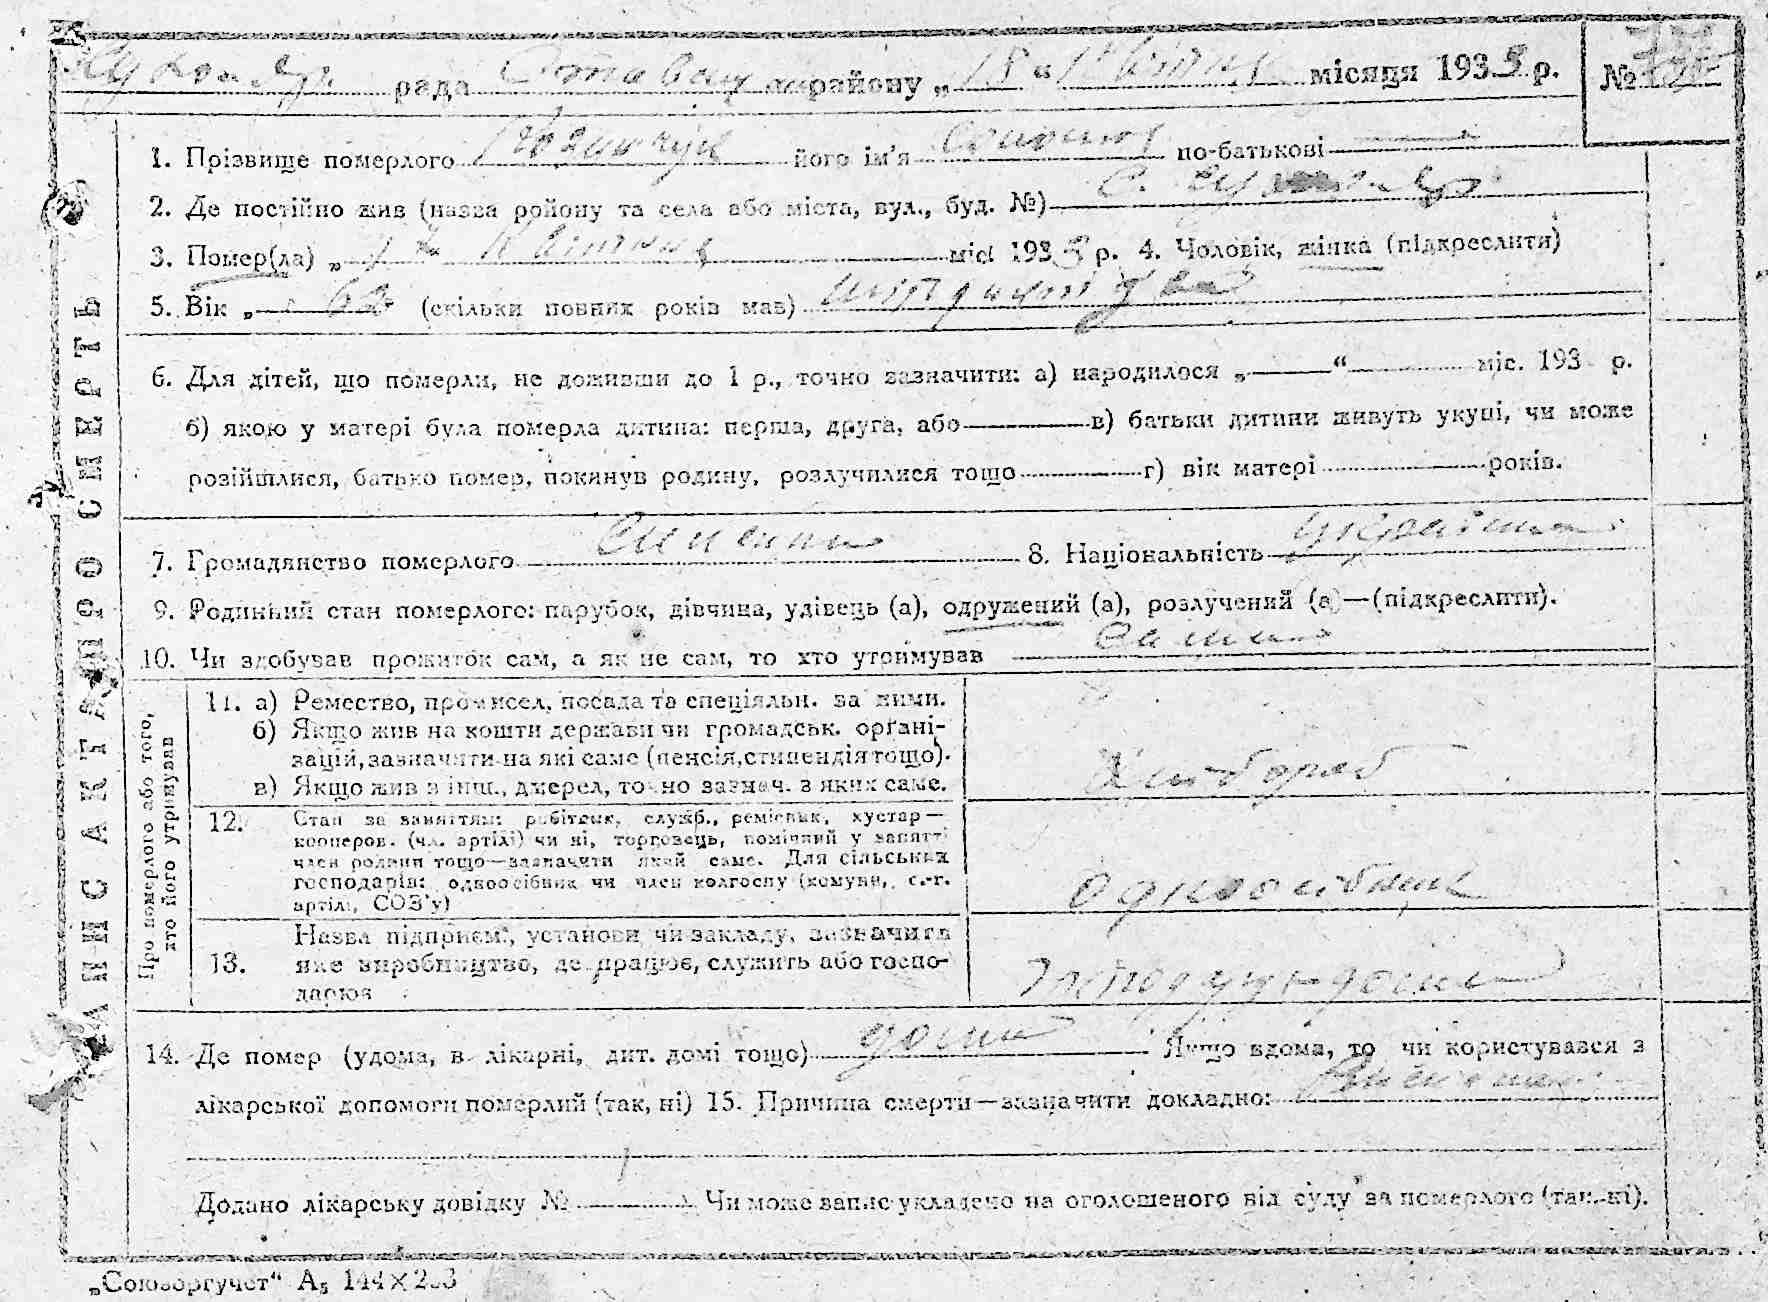 рада району „18“ квітня місяця 1933 р. №
1. Прізвище померлого його ім'я по-батькові
2. Де постійно жив (назва ройону та села або міста, вул., буд. №) с.
3. Помер(ла) „ квітня міс 1933 р. 4. Чоловік, жінка (підкреслити)
5. Вік „ 62 (скільки повних років мав) шістдесят два
6. Для дітей, що померли, не доживши до 1 р., точно зазначити: а) народилося „ “ міс. 193 р.
б) якою у матері була померла дитина: перша, друга, або в) батьки дитини живуть укупі, чи може
розійшлися, батько помер, покинув родину, розлучилися тощо г) вік матері років.
7. Громадянство померлого 8. Національність
9. Родинний стан померлого: парубок, дівчина, удівець (а), одружений (а), розлучений (а)—(підкреслити).
10. Чи здобував прожиток сам, а як не сам, то хто утримував
11. а) Ремество, промисел, посада та спеціяльн. за ними.
б) Якщо жив на кошти держави чи громадськ. орґані-
зацій, зазначити на які саме (пенсія, стипендія тощо).
в) Якщо жив з інш., джерел, точно зазнач. з яких саме.
Хлібороб
12. Стан за заняттям: робітник, служб., ремісник, кустар—
кооперов. (чл. артілі) чи ні, торговець, помічний у занятті
член родини тощо—зазначити який саме. Для сільських
господарів: одноосібник чи член колгоспу (комуни, с.-г.
артілі, СОЗ'у)
одноосібник
13. Назва підприєм., установи чи закладу, зазначити
яке виробництво, де працює, служить або госпо-
дарює
Про померлого або того,
хто його утримував
14. Де помер (удома, в лікарні, дит. домі тощо) дома Якщо вдома, то чи користувався з
лікарської допомоги померлий (так, ні) 15. Причина смерти—зазначити докладно:
Додано лікарську довідку № Чи може запис укладено на оголошеного від суду за померлого (так, ні).
ЗАПИС АКТА ПРО СМЕРТЬ
„Союзоргучет“ А5